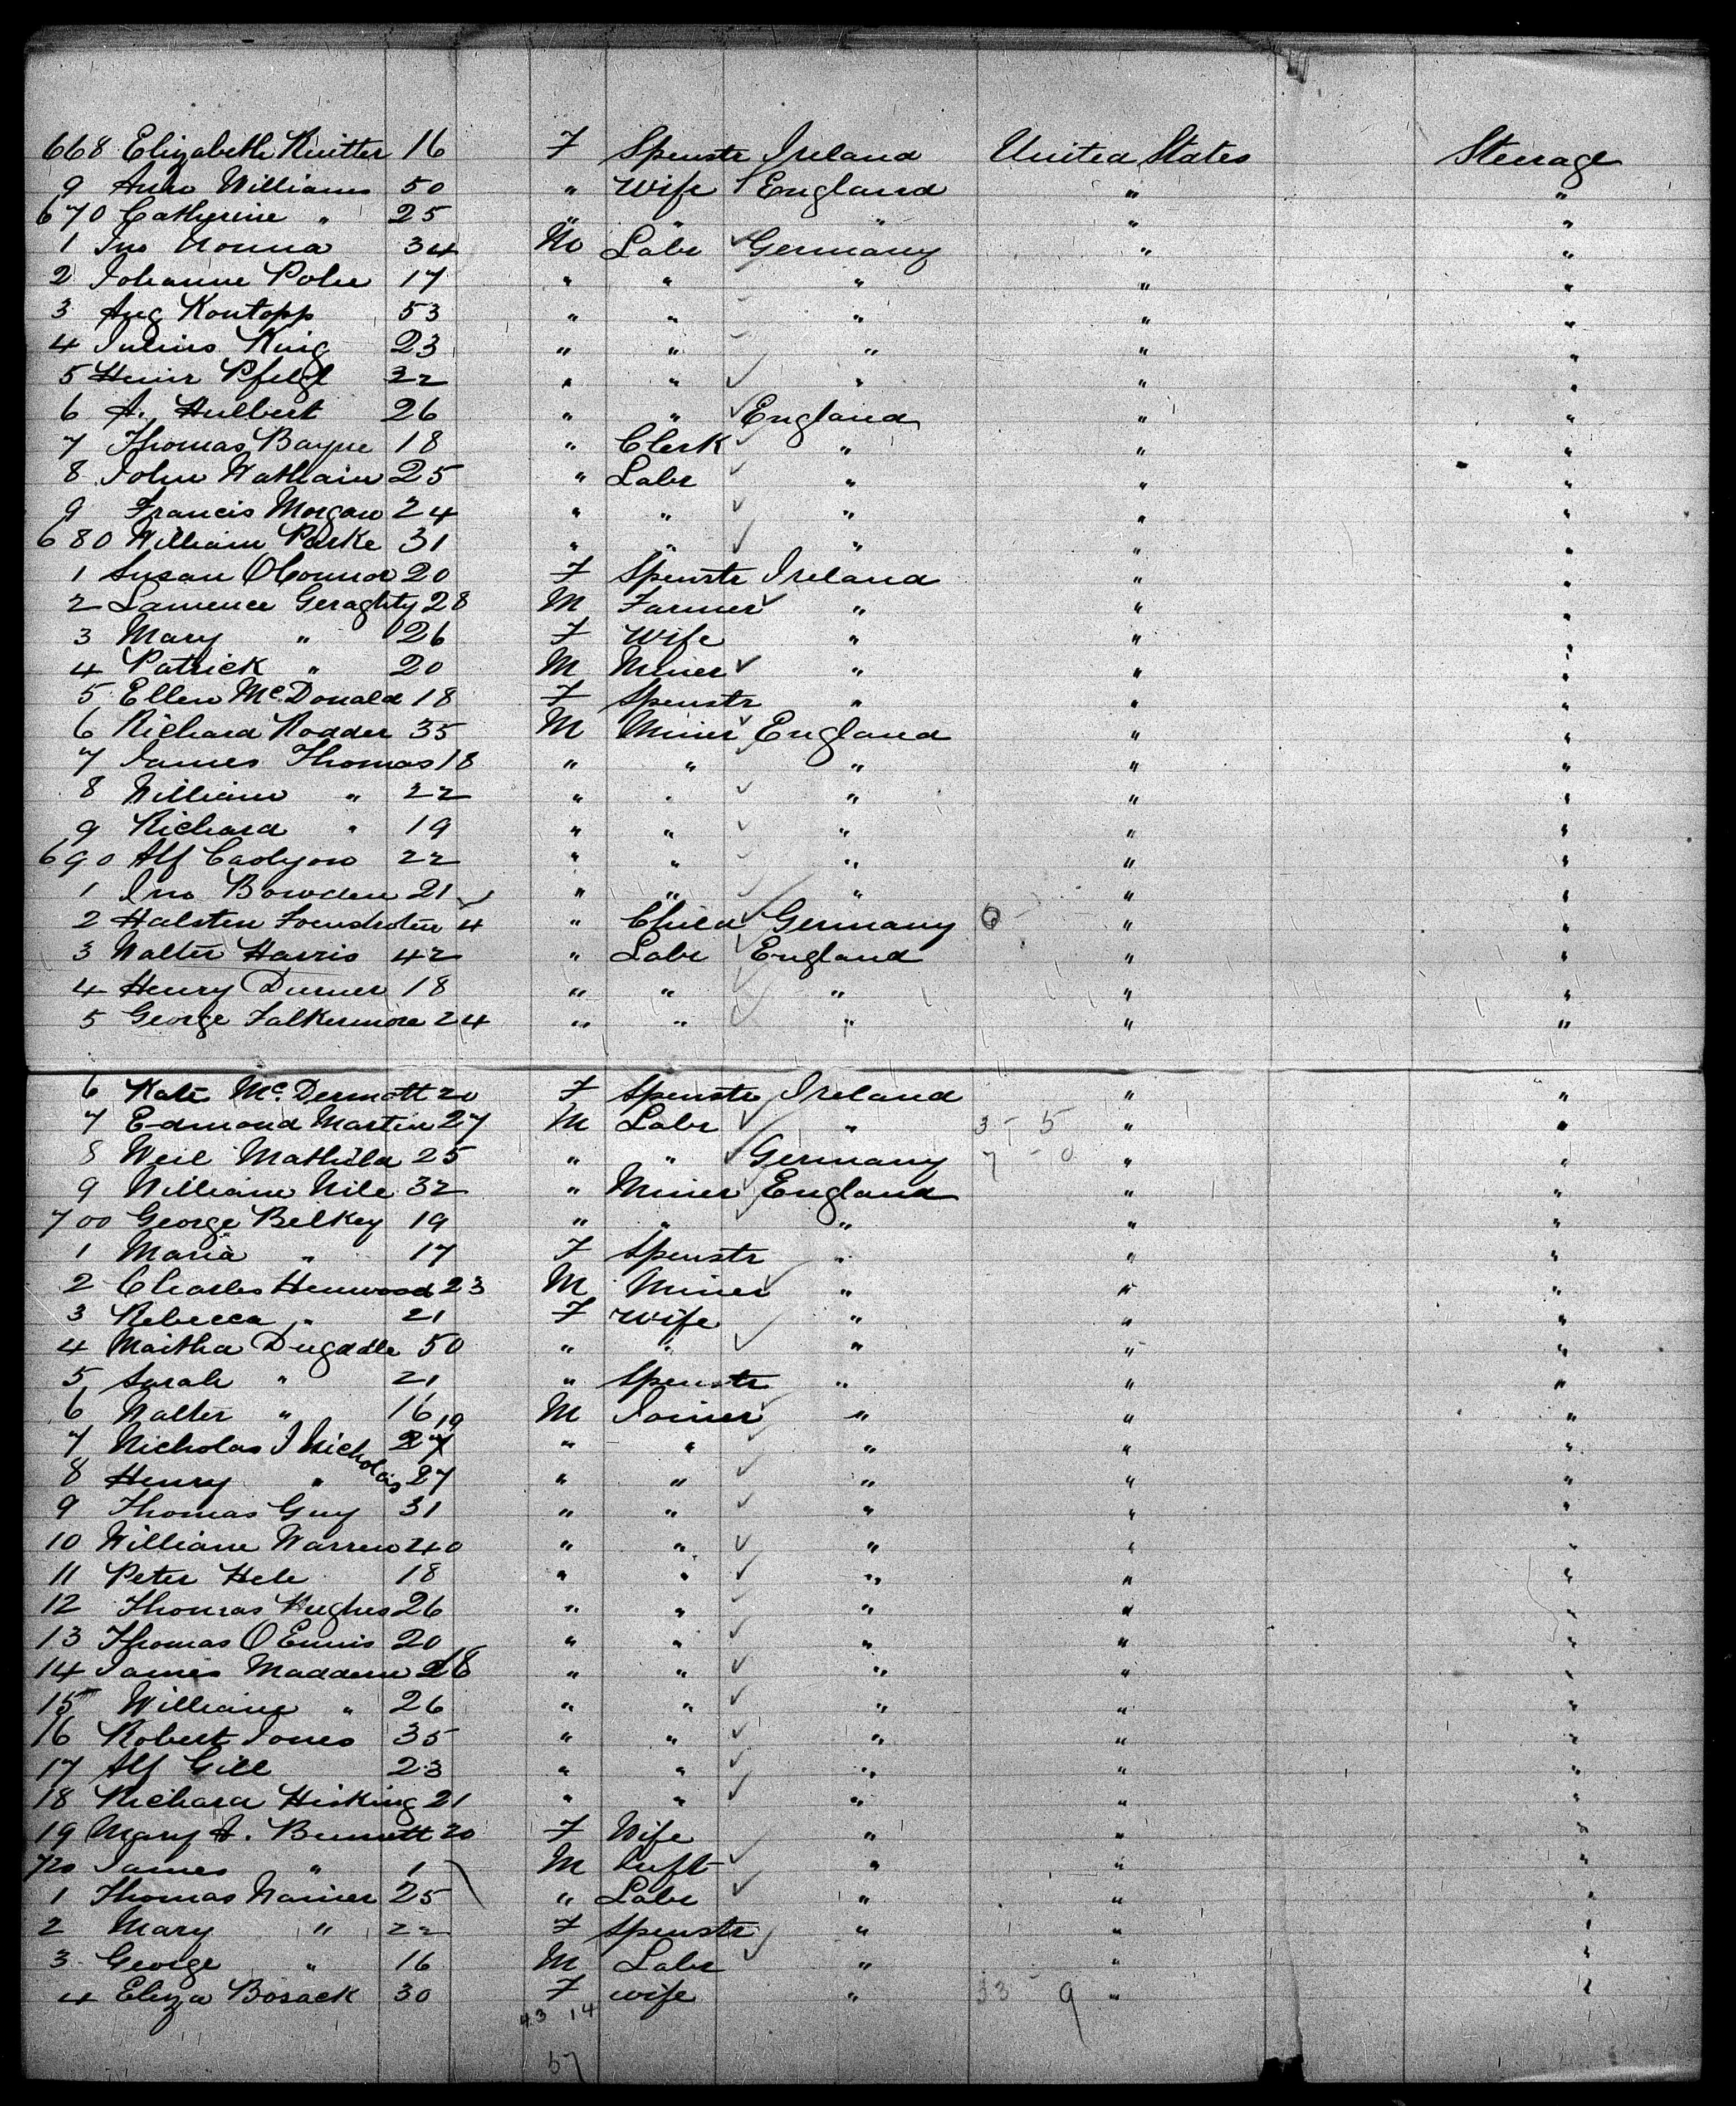 668 Elizabeth Ruitter 16 F Spenstr Ireland United States Steerage
9 Ann Williams 50 " Wife England " "
670 Cathrine " 25 " " " " "
1 Jno Nonna 34 M Labr Germany " "
2 Johanne Pohe 17 " " " " "
3 Aug Kontopp 53 " " " " "
4 Julius King 23 " " " " "
5 Heinr Pfeigl 32 " " " " "
6 A. Hulbert 26 " " England " "
7 Thomas Bayne 18 " Clerk " " "
8 John 25 " Labr " " "
9 Francis Morgan 24 " " " " "
680 William Parke 31 " " " " "
1 Susan OConnor 20 F Spenstr Ireland " "
2 Lawrence Geraghty 28 M Farmer " " "
3 Mary " 26 F Wife " " "
4 Patrick " 20 M Miner " " "
5 Ellen McDonald 18 F Spenstr " " "
6 Richard Rodder 35 M Miner England " "
7 James Thomas 18 " " " " "
8 William " 22 " " " " "
9 Richard " 19 " " " " "
690 Alf Carlyon 22 " " " " "
1 Jno Bowden 21 " " " " "
2 Halsten 4 " Child Germany 6 " "
3 Walter Harris 42 " Labr England " "
4 Henry Durner 18 " " " " "
5 George Falkermore 24 " " " " "
6 Kate McDermott 20 F Spenstr Ireland " "
7 Edmond Martin 27 M Labr " 3 - 5 " "
8 Weil Mathilda 25 " " Germany 7 - 0 " "
9 William Nile 32 " Miner England " "
700 George Belkey 19 " " " " "
1 Maria " 17 F Spenstr " " "
2 Charles Henwood 23 M Miner " " "
3 Rebecca " 21 F Wife " " "
4 Maitha Dugdale 50 " " " " "
5 Sarah " 21 " Spenstr " " "
6 Walter " 16 M Joiner " " "
7 Nicholas J Nicholas 19 27 " " " " "
8 Henry " 27 " " " " "
9 Thomas Guy 31 " " " " "
10 William Warren 40 " " " " "
11 Peter Hele 18 " " " " "
12 Thomas Hughes 26 " " " " "
13 Thomas O Ennis 20 " " " " "
14 James Maddern 28 " " " " "
15 William " 26 " " " " "
16 Robert Jones 35 " " " " "
17 Alf Gill 23 " " " " "
18 Richard Hisking 21 " " " " "
19 Mary A. Bennett 20 F Wife " " "
720 James " 1 M Inft " " "
1 Thomas Warner 25 " Labr " " "
2 Mary " 22 F Spenstr " " "
3 George " 16 M Labr " " "
4 Eliza Bosack 30 F wife " 33 9 " "
43 14
57